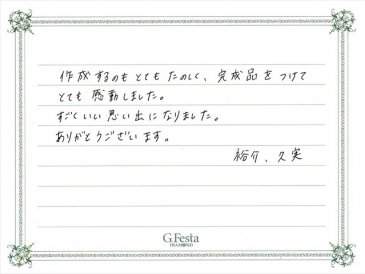 作成するのもとてもたのしく、完成品をつけて
とても感動しました。
すごくいい思い出になりました。
ありがとうございます。
裕介、久実
G.Festa
DIAMOND